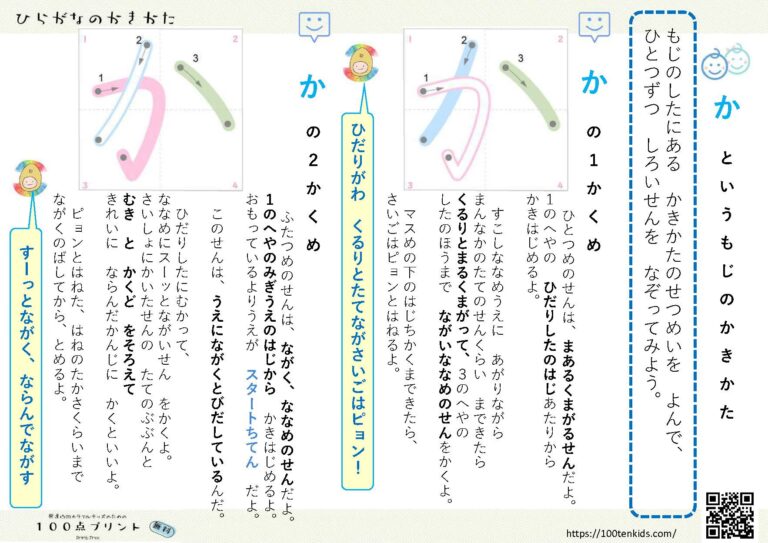 ひらがなのかきかた
か というもじのかきかた
もじのしたにある かきかたのせつめいを よんで、
ひとつずつ しろいせんを なぞってみよう。
か の１かくめ
1
2
3
4
1
2
3
ひとつめのせんは、まあるくまがるせんだよ。
１のへやの ひだりしたのはじあたりから
かきはじめるよ。
すこしななめうえに あがりながら
まんなかのたてのせんくらい まできたら
くるりとまるくまがって、３のへやの
したのほうまで ながいななめのせんをかくよ。
マスめの下のはじちかくまできたら、
さいごはピョンとはねるよ。
ひだりがわ くるりとたてながさいごはピョン！
か の２かくめ
1
2
3
4
1
2
3
ふたつめのせんは、ながく、ななめのせんだよ。
１のへやのみぎうえのはじから かきはじめるよ。
おもっているよりうえが スタートちてん だよ。
このせんは、うえにながくとびだしているんだ。
ひだりしたにむかって、
ななめにスーッとながいせん をかくよ。
さいしょにかいたせんの たてのぶぶんと
むき と かくど をそろえて
きれいに ならんだかんじに かくといいよ。
ピョンとはねた、はねのたかさくらいまで
ながくのばしてから、とめるよ。
すーっとながく、ならんでながす
１００点プリント
無料
https://100tenkids.com/